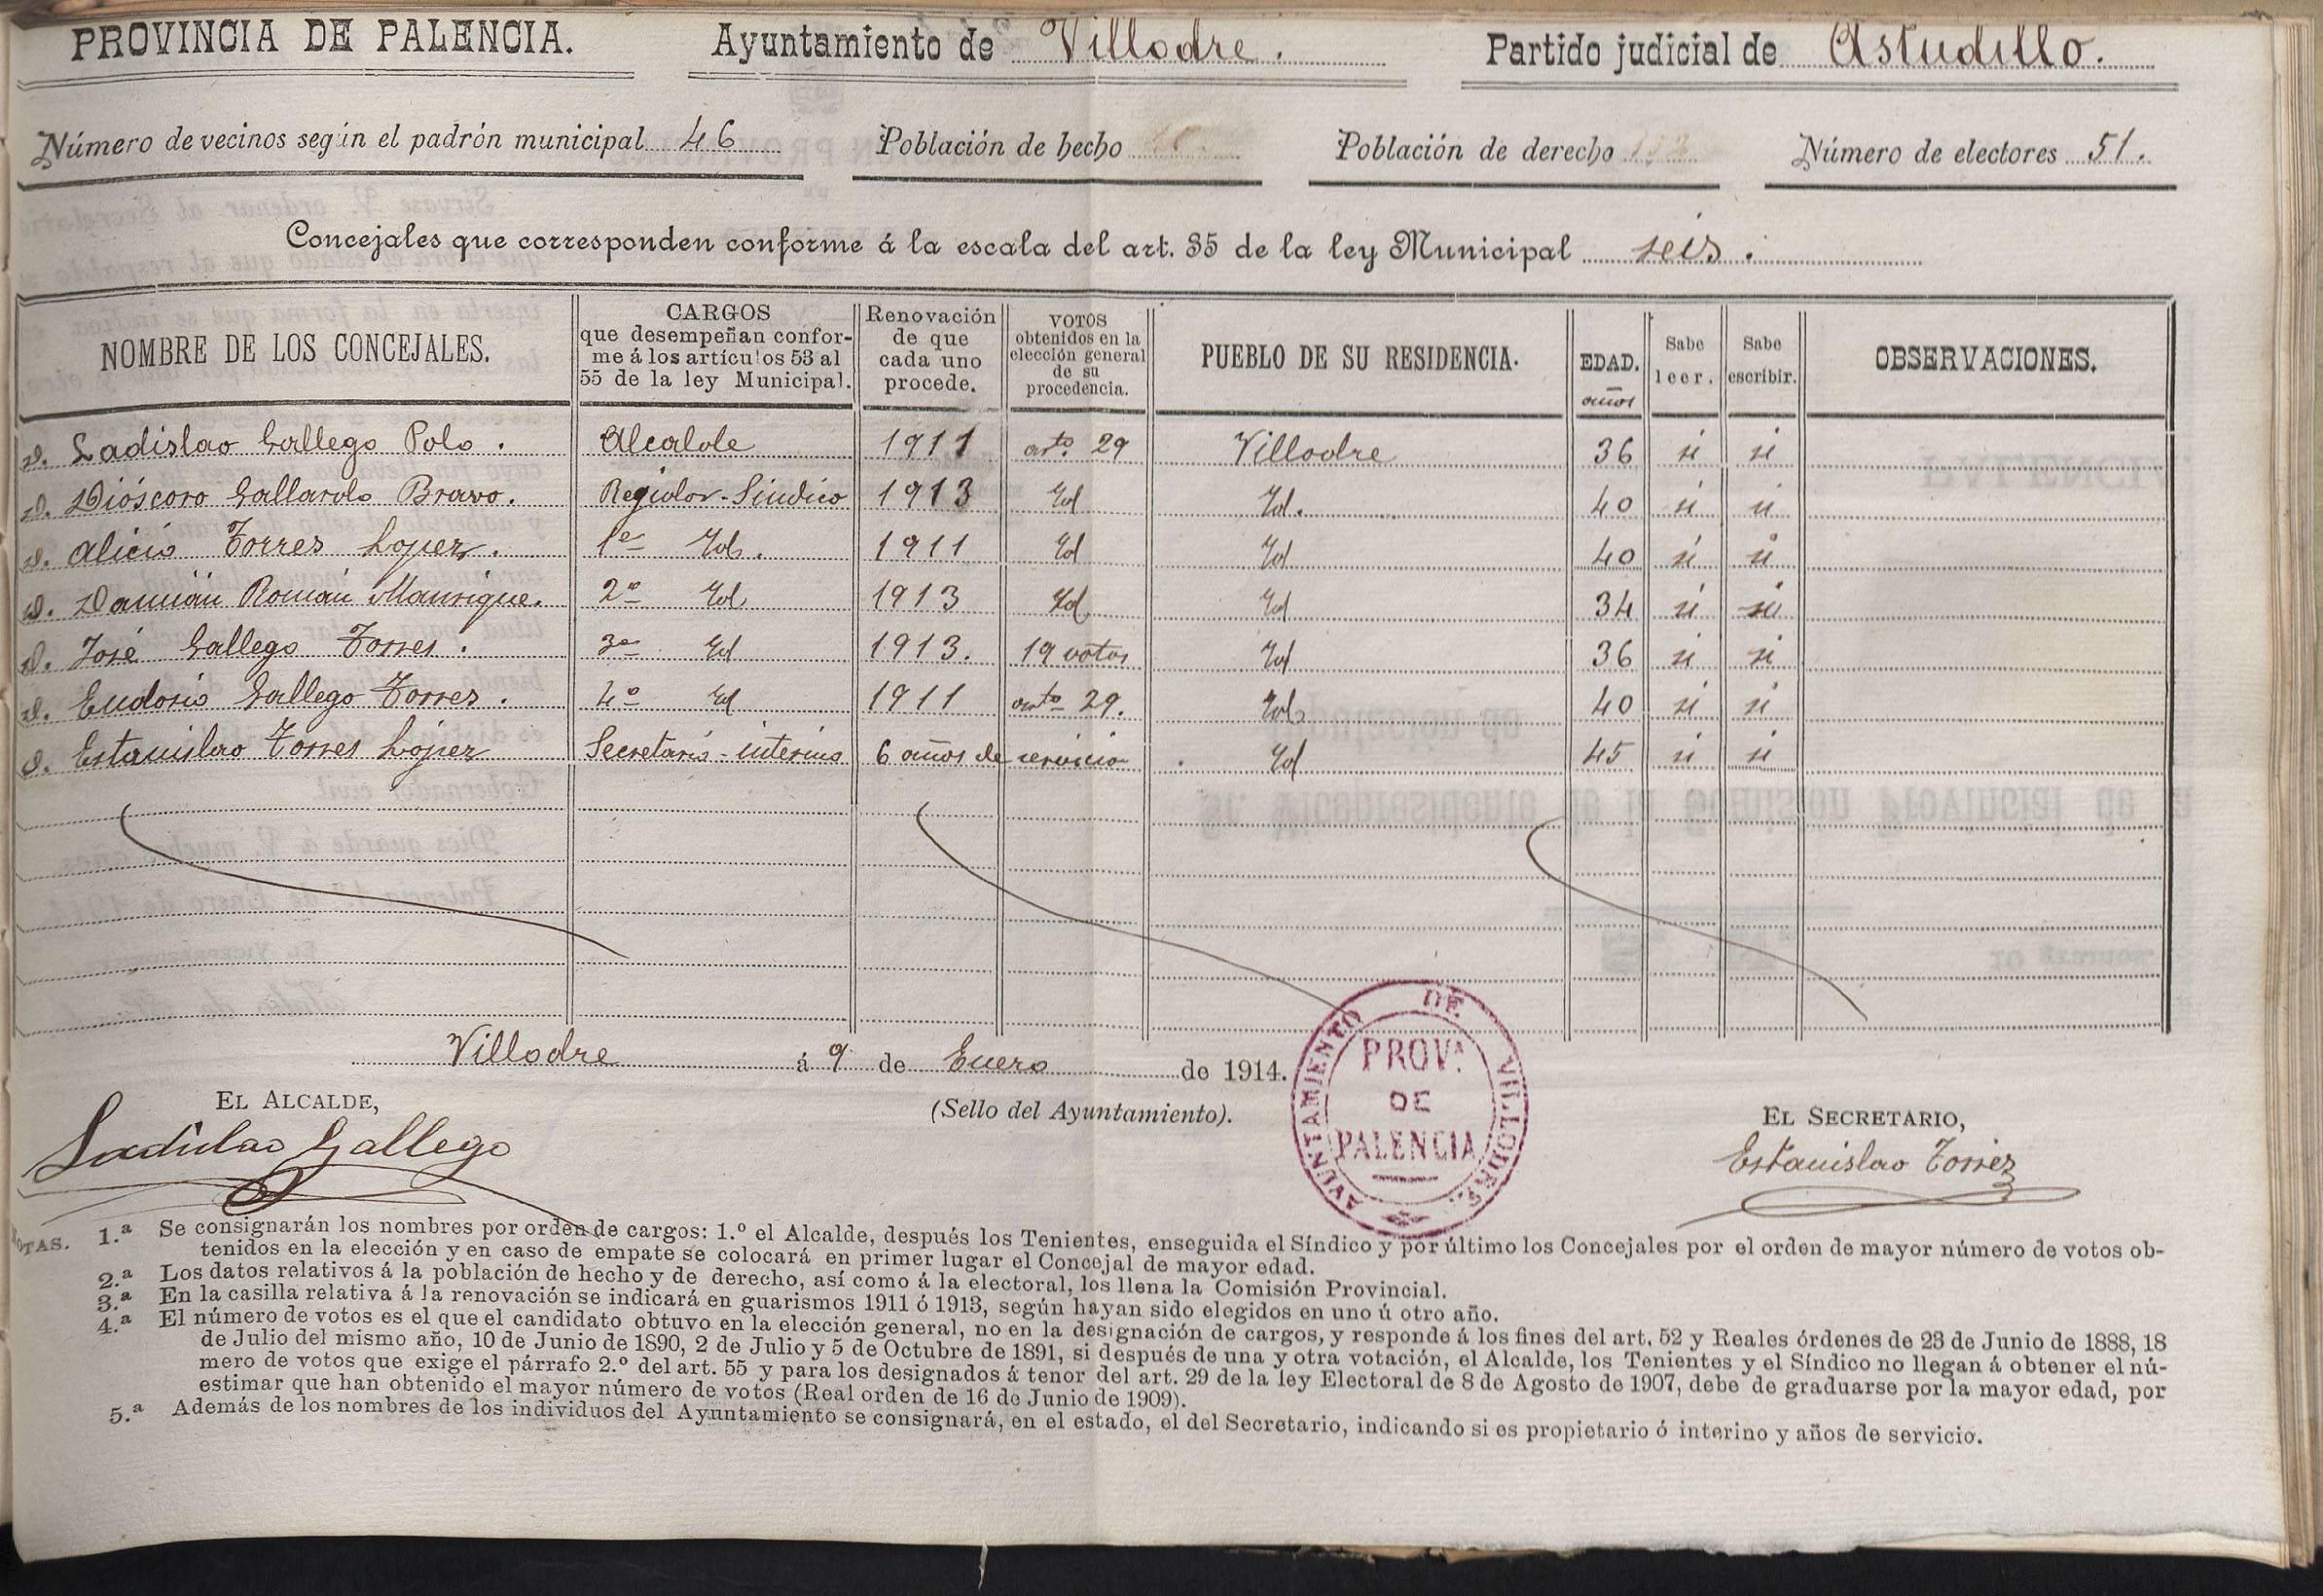 PROVINCIA DE PALENCIA. Ayuntamiento de Villodre. Partido judicial de Astudillo.
Número de vecinos según el padrón municipal 46 Población de hecho Población de derecho Número de electores 51.
Concejales que corresponden conforme á la escala del art. 35 de la ley Municipal seis.
NOMBRE DE LOS CONCEJALES.
CARGOS
que desempeñan confor-
me á los artículos 53 al
55 de la ley Municipal.
Renovación
de que
cada uno
procede.
VOTOS
obtenidos en la
elección general
de su
procedencia.
PUEBLO DE SU RESIDENCIA.
EDAD.
años
Sabe
leer.
Sabe
escribir.
OBSERVACIONES.
D. Ladislao Gallego Polo. Alcalde 1911 arto. 29 Villodre 36 si si
D. Dióscoro Gallardo Bravo. Regidor-Sindico 1913 Id Id. 40 si si
D. Alicio Torres Lopez. 1º Id. 1911 Id Id 40 si si
D. Damián Román Manrique. 2º Id 1913 Id Id 34 si si
D. José Gallego Torres. 3º Id 1913. 19 votos Id 36 si si
D. Eudosio Gallego Torres. 4º Id 1911 arto 29. Id 40 si si
D. Estanislao Torres López Secretario-interino 6 años de servicio. Id 45 si si
Villodre á 9 de Enero de 1914.
EL ALCALDE,
Ladislao Gallego
(Sello del Ayuntamiento).
AYUNTAMIENTO DE VILLODRE.
PROVª
DE
PALENCIA
EL SECRETARIO,
Estanislao Torres
NOTAS. 1.ª Se consignarán los nombres por orden de cargos: 1.º el Alcalde, después los Tenientes, enseguida el Síndico y por último los Concejales por el orden de mayor número de votos ob-
tenidos en la elección y en caso de empate se colocará en primer lugar el Concejal de mayor edad.
2.ª Los datos relativos á la población de hecho y de derecho, así como á la electoral, los llena la Comisión Provincial.
3.ª En la casilla relativa á la renovación se indicará en guarismos 1911 ó 1913, según hayan sido elegidos en uno ú otro año.
4.ª El número de votos es el que el candidato obtuvo en la elección general, no en la designación de cargos, y responde á los fines del art. 52 y Reales órdenes de 23 de Junio de 1888, 18
de Julio del mismo año, 10 de Junio de 1890, 2 de Julio y 5 de Octubre de 1891, si después de una y otra votación, el Alcalde, los Tenientes y el Síndico no llegan á obtener el nú-
mero de votos que exige el párrafo 2.º del art. 55 y para los designados á tenor del art. 29 de la ley Electoral de 8 de Agosto de 1907, debe de graduarse por la mayor edad, por
estimar que han obtenido el mayor número de votos (Real orden de 16 de Junio de 1909).
5.ª Además de los nombres de los individuos del Ayuntamiento se consignará, en el estado, el del Secretario, indicando si es propietario ó interino y años de servicio.